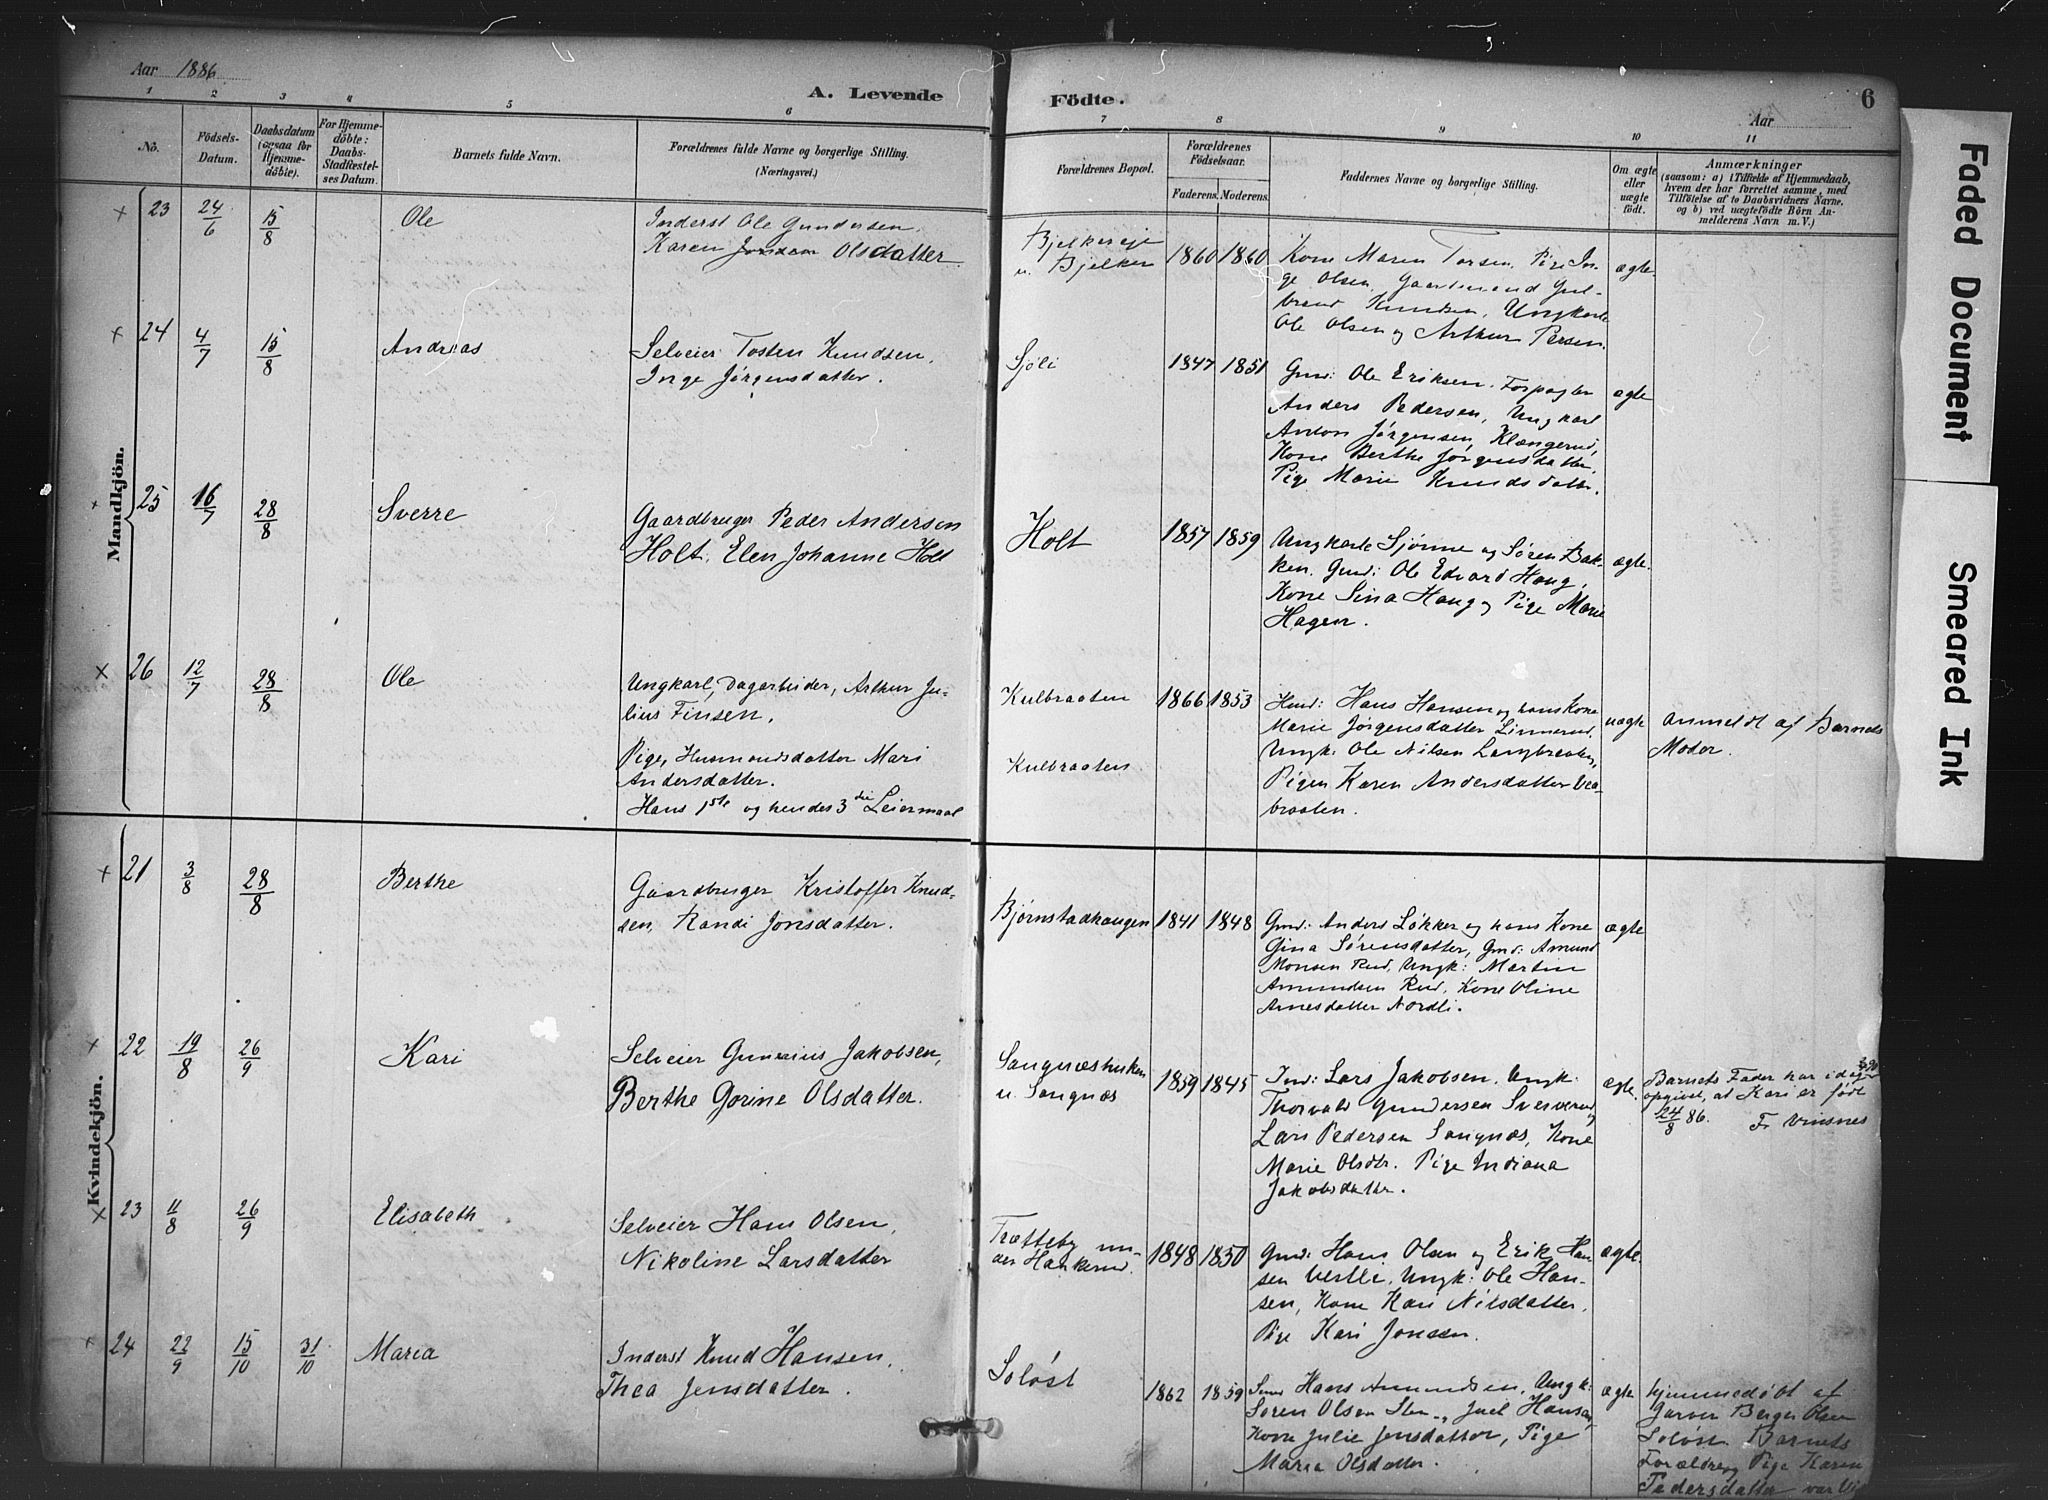 Aar 1886
A. Levende
Födte.
Aar
6
1 2 3 4 5 6 7 8 9 10 11
No.
Födsels-
Datum.
Daabsdatum
(ogsaa for
Hjemme-
döbte).
For Hjemme-
döbte:
Daabs-
Stadfæstel-
ses Datum.
Barnets fulde Navn.
Forældrenes fulde Navne og borgerlige Stilling.
(Næringsvei.)
Forældrenes Bopæl.
Forældrenes
Födselsaar.
Faderens. Moderens.
Faddernes Navne og borgerlige Stilling.
Om ægte
eller
uægte
födt.
Anmærkninger
(saasom: a) i Tilfælde af Hjemmedaab,
hvem der har forrettet samme, med
Tilföielse af to Daabsvidners Navne.
og b) ved uægtefödte Börn An-
melderens Navn m. V.)
Mandkjön.
23 24/6 15/8 Ole
Inderst Ole Gundersen.
Karen Olsdatter
Bjelkereje
u. Bjelker
1860 1860
Kone Maren Torsen, Pige In-
ge Olsen, Gaardmand Gul-
brand Knudsen, Ungkarle
Ole Olsen og Arthur Persen.
ægte
24 4/7 15/8 Andreas
Selveier Tosten Knudsen,
Inge Jørgensdatter.
Sjöli
1847 1851
Gmd: Ole Eriksen. Forpagter
Anders Pedersen, Ungkarl
Anton Jørgensen, Klængerud,
Kone Berthe Jørgensdatter.
Pige Marie Knudsdatter.
ægte
25 16/7 28/8 Sverre
Gaardbruger Peder Andersen
Holt. Elen Johanne Holt
Holt
1857 1859
Ungkarle Sjønne og Søren Bak-
ken. Gmd: Ole Edvard Haug,
Kone Sina Haug og Pige Marie
Hagen.
ægte
26 12/7 28/8 Ole
Ungkarl, Dagarbeider, Arthur Ju-
lius Finsen.
Pige, Husmandsdatter Mari
Andersdatter.
Hans 1ste og hendes 3die Leiermaal
Kulbraaten
Kulbraaten
1866 1853
Hmd: Hans Hansen og hans Kone
Marie Jørgensdatter Linnerud.
Ungk: Ole Nilsen Langbraaten,
Pigen Karen Andersdatter
braaten.
uægte
Anmeldt af Barnets
Moder.
Kvindekjön.
21 3/8 28/8 Berthe
Gaardbruger Kristoffer Knud-
sen, Randi Jonsdatter.
Bjørnstadhaugen
1841 1848
Gmd: Anders Løkker og hans Kone
Gina Sørensdatter, Gmd: Amund
Monsen Rud, Ungk: Martin
Amundsen Rud, Kone Oline
Arnesdatter Nordli.
ægte
22 19/8 26/9 Kari
Selveier Gunerius Jakobsen,
Berthe Gorine Olsdatter.
Sangnæshuken
u. Sangnæs
1859 1845
Ind: Lars Jakobsen. Ungk:
Thorvald Gundersen
Lars Pedersen Sangnæs, Kone
Marie Olsdtr. Pige Indiana
Jakobsdatter.
ægte.
Barnets Fader har idag
opgivet, at Kari er født
24/8 86. F. Vinsnes
23 11/8 26/9 Elisabeth
Selveier Hans Olsen,
Nikoline Larsdatter
Trætteby un-
der Hankerud.
1848 1850
Gmd: Hans Olsen og Erik Han-
sen Vestli, Ungk: Ole Han-
sen, Kone Kari Nilsdatter.
Pige Kari Jonsen.
ægte.
24 22/9 15/10 31/10 Maria
Inderst Knud Hansen,
Thea Jensdatter.
Soløst
1862 1859
Hans Amundsen, Ungk:
Søren Olsen Juel Hansen
Kone Julie Jensdatter, Pige
Maria Olsdatter.
ægte
hjemmedøbt af
Garver Berger Olsen
Soløst. Barnets
Forældre og Pige Karen
Pedersdatter var
Faded Document
Smeared Ink